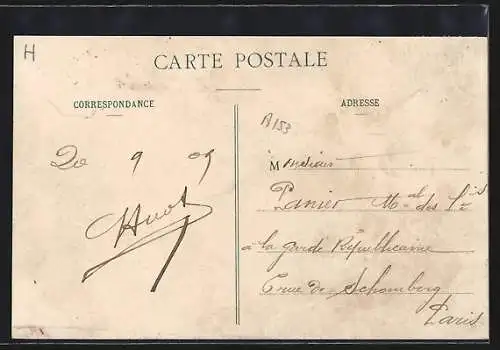 H
CARTE POSTALE
CORRESPONDANCE
ADRESSE
A153
20 9 05
Huot
Monsieur
Panier Mal des Lis
à la garde Républicaine
6 rue de Schomberg
Paris